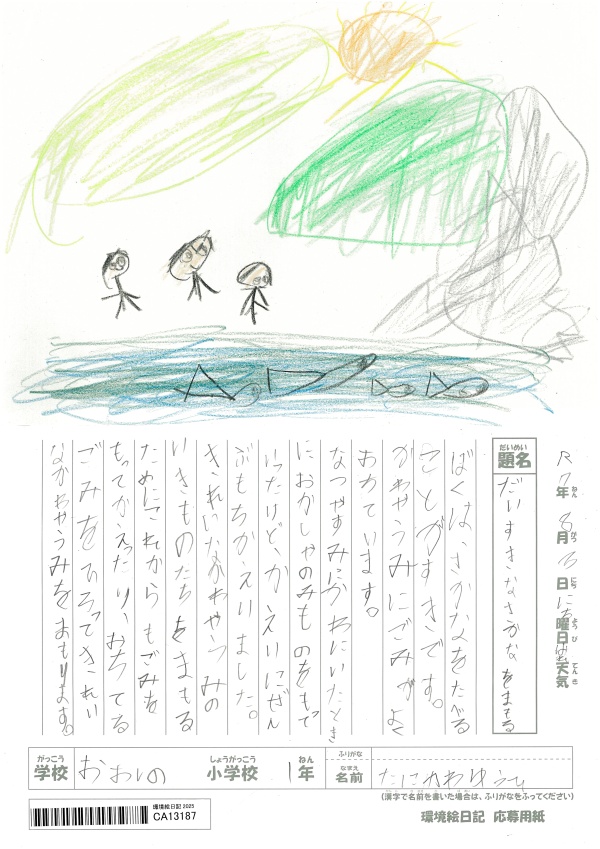 R7年8月10日にち曜日はれ天気
ねん がつ にち ようび てんき
だいめい
題名
だいすきなさかなをまもる
ぼくは、さかなをたべる
ことがすきです。
かわやうみにごみがよく
おちています。
なつやすみにかわにいたとき
におかしやのみものをもって
いったけど、かえりにぜん
ぶもちかえりました。
きれいなかわやうみの
いきものたちをまもる
ためにこれからもごみを
もってかえったり、おちてる
ごみをひろってきれい
なかわやうみをまもります。
がっこう
学校
おおの
しょうがっこう
小学校
1
ねん
年
ふりがな
なまえ
名前
たにかわゆうひ
(漢字で名前を書いた場合は、ふりがなをふってください)
環境絵日記 2025
CA13187
環境絵日記 応募用紙